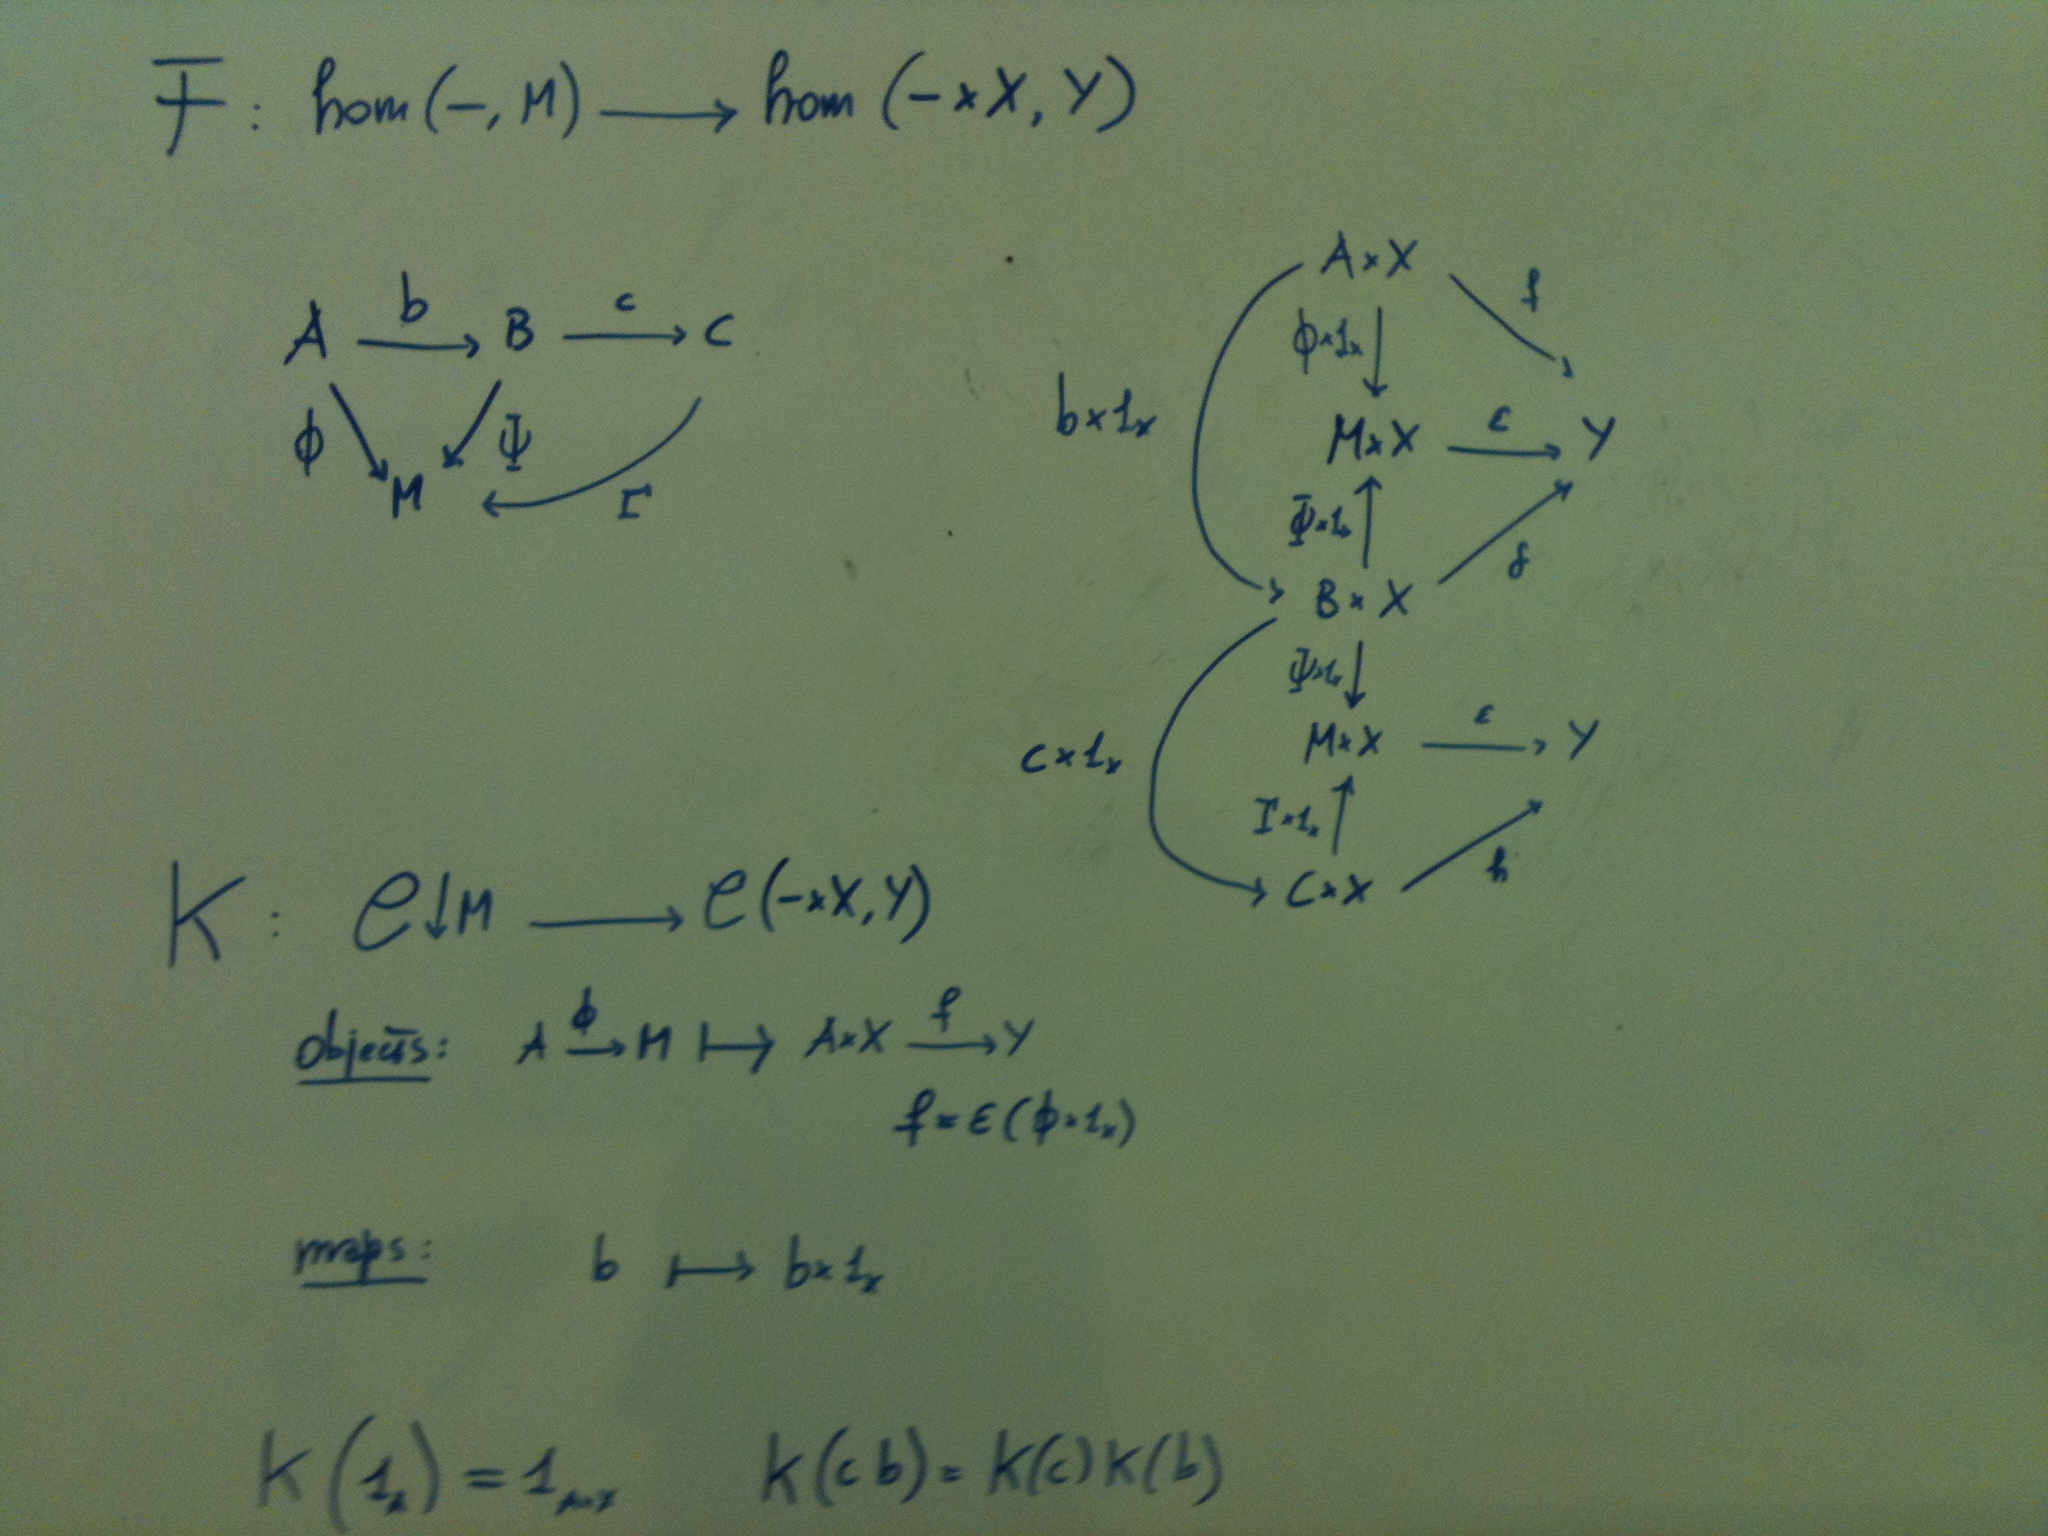 F : hom(−, M) ⟶ hom(−×X, Y)
A b B c C
ϕ Ψ Γ
M
A×X f
ϕ×1ₓ
b×1ₓ M×X ε Y
Ψ×1ₓ g
B×X
Ψ×1ₓ
c×1ₓ M×X ε Y
Γ×1ₓ h
C×X
K : C↓M ⟶ C(−×X, Y)
objects: A ϕ→ M ↦ A×X f→ Y
f = ε(ϕ×1ₓ)
maps: b ↦ b×1ₓ
K(1ₐ) = 1_A×X K(cb) = K(c)K(b)